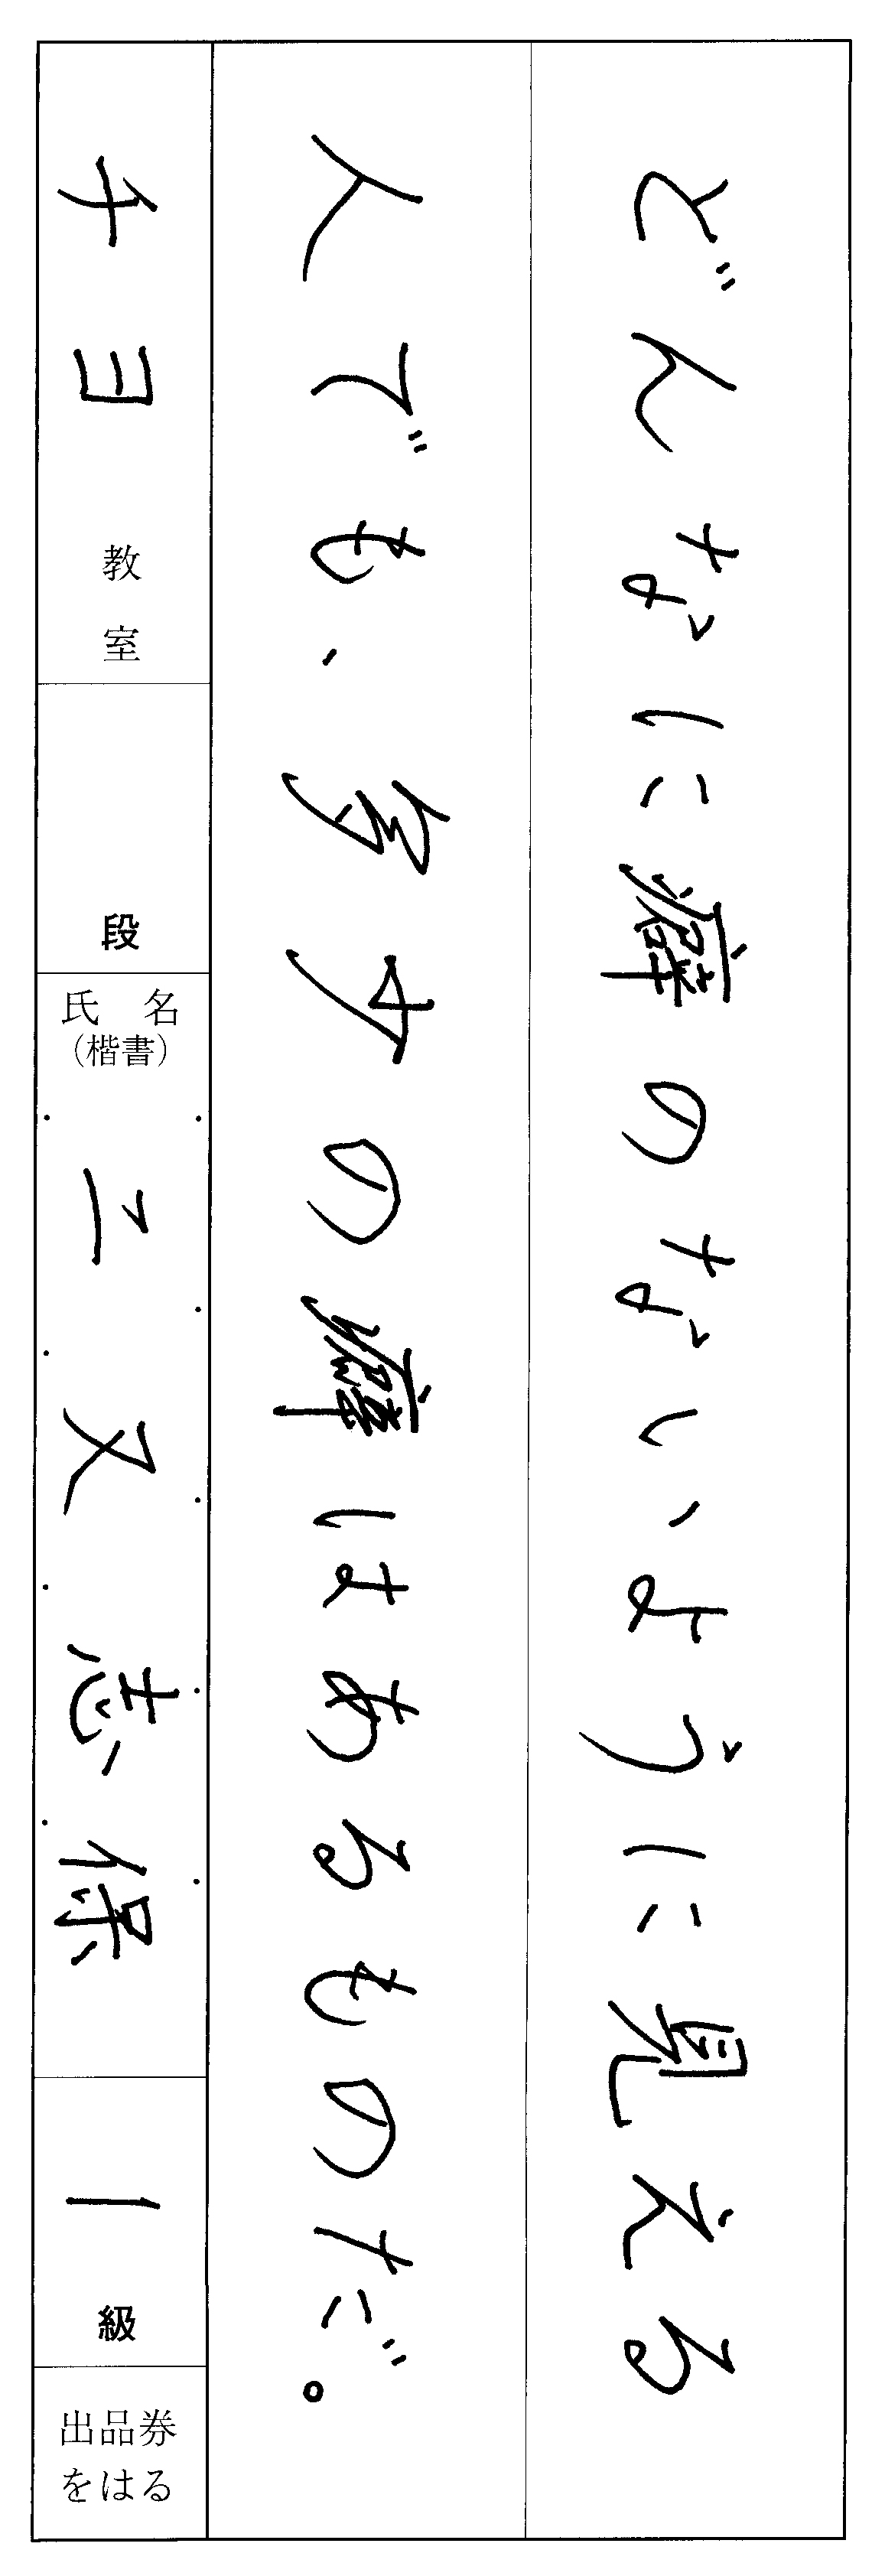 どんなに癖のないように見える
人でも、多少の癖はあるものだ。
チヨ教室
段
氏名
(楷書)
二又志保
1級
出品券
をはる